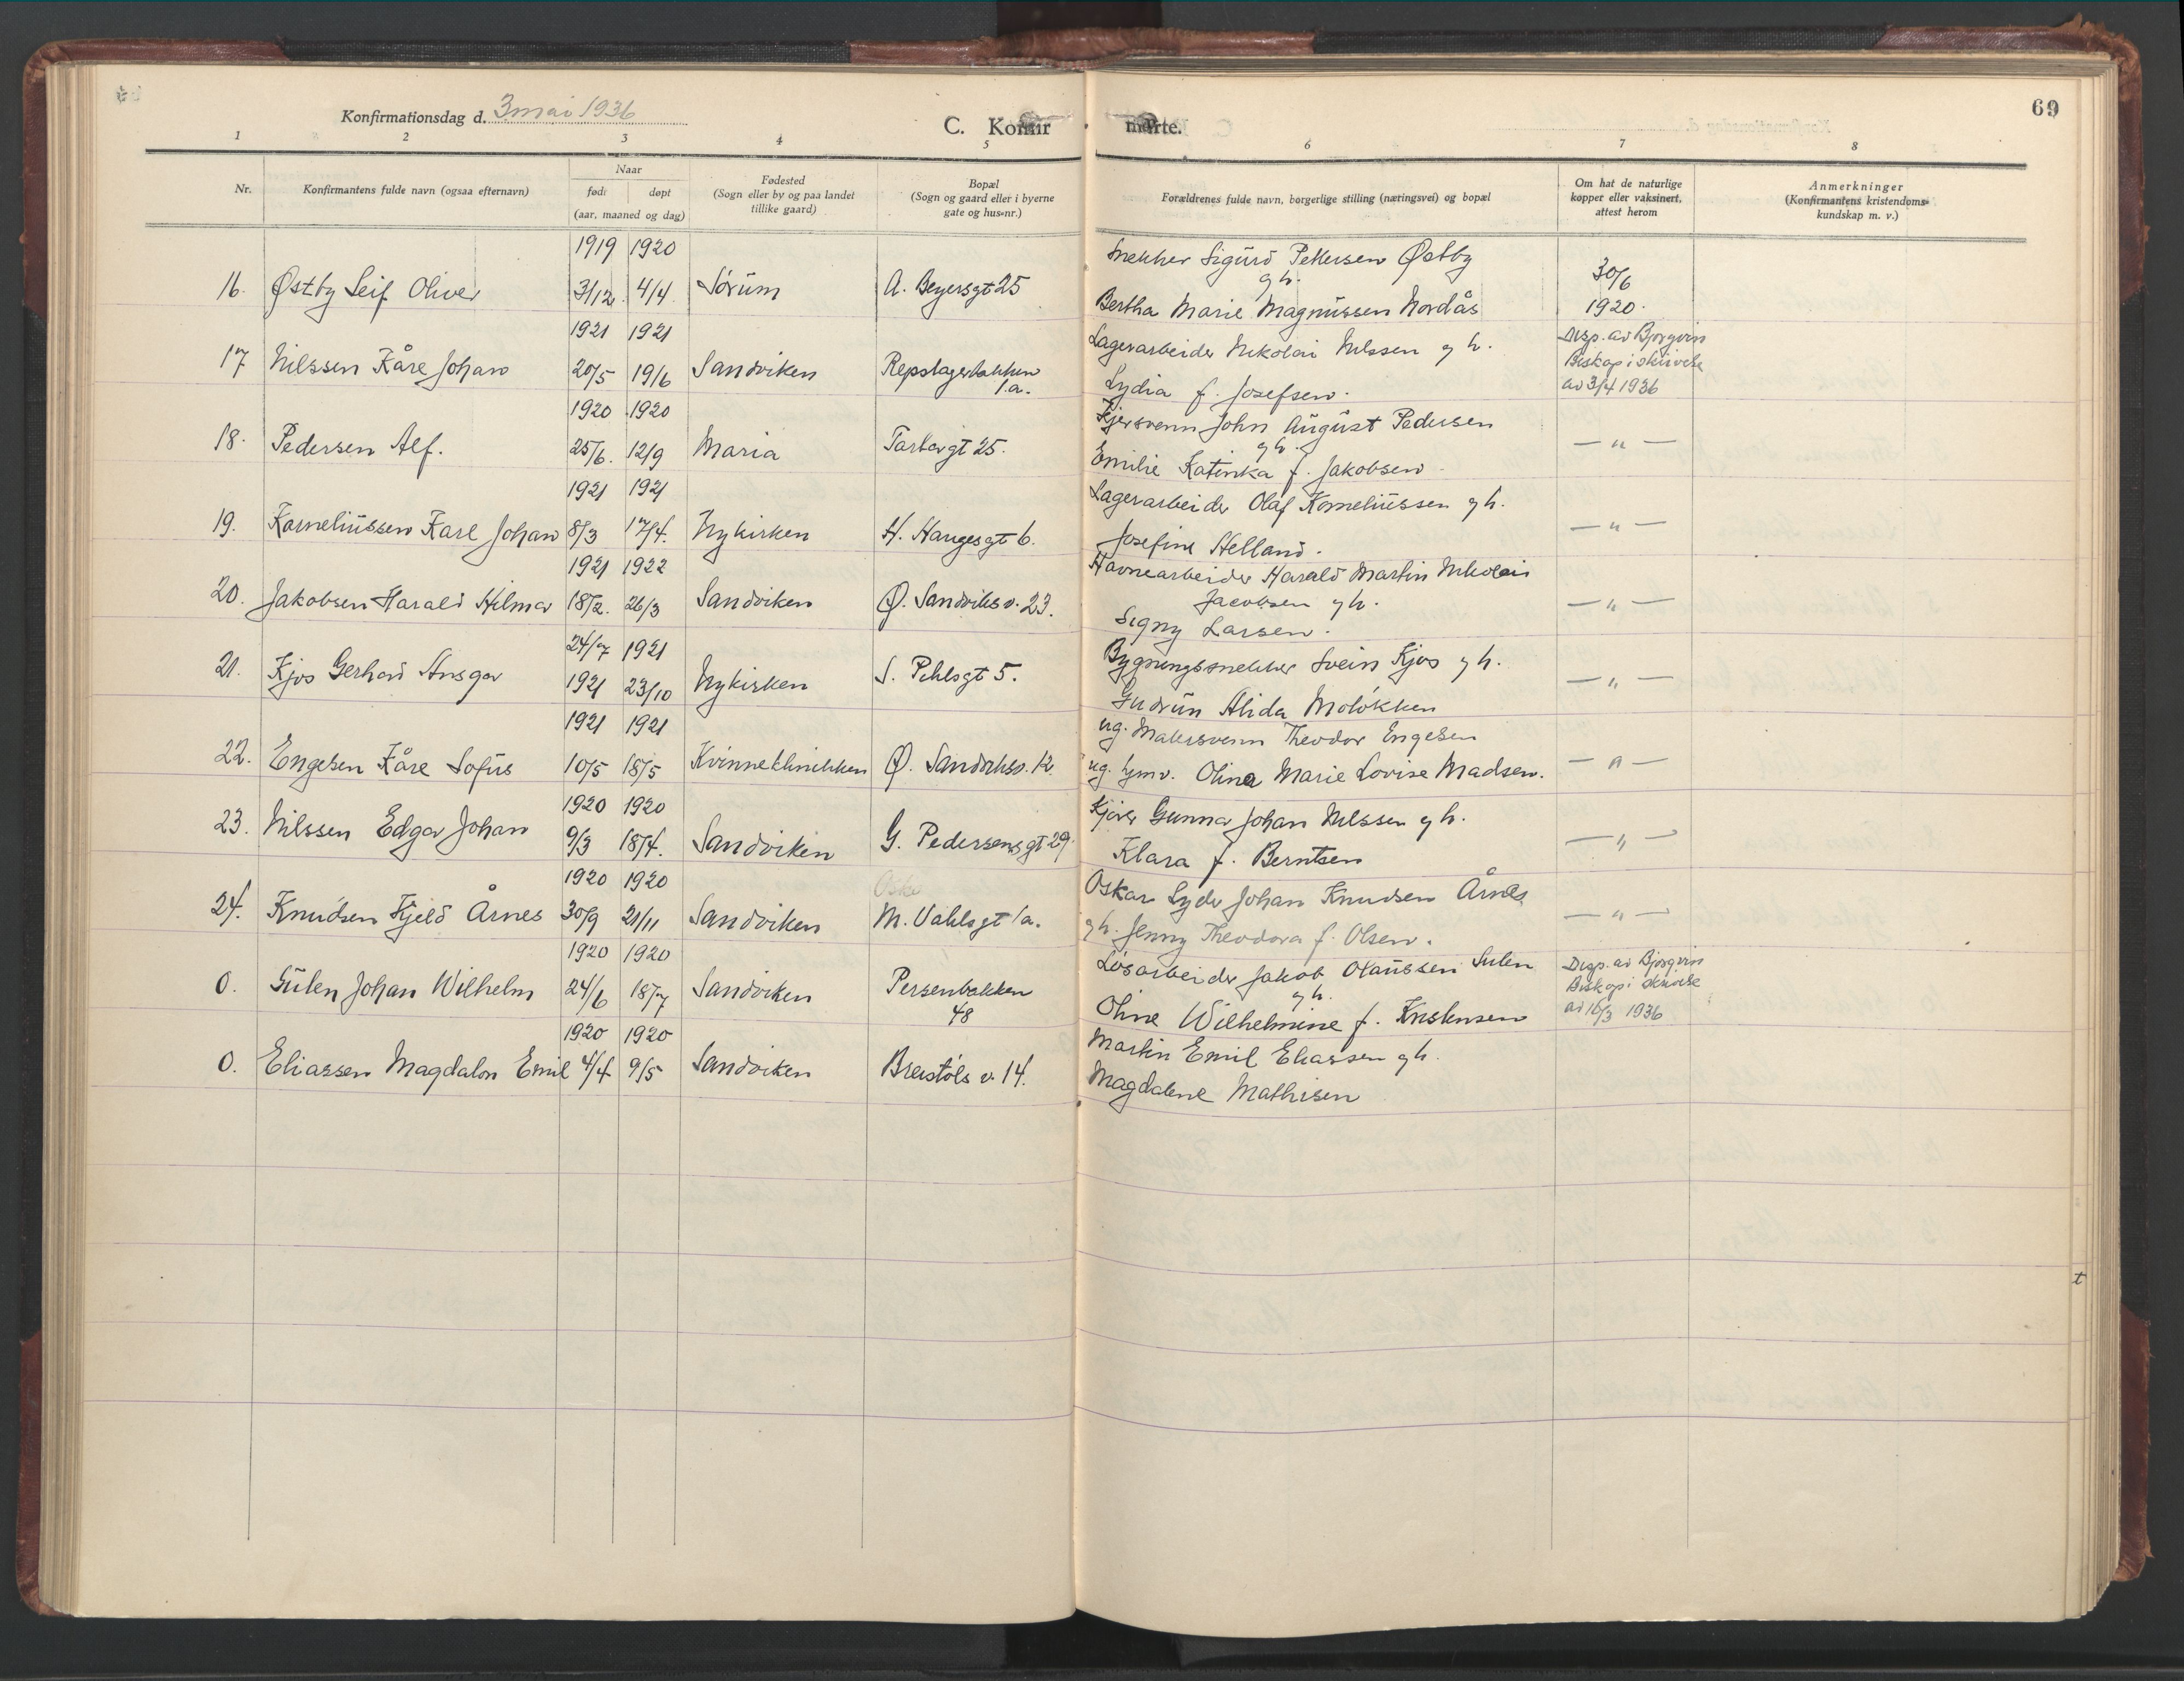 69
Konfirmationsdag d. 3 mai 1936
C. Konfir merte.
1 2 3 4 5 6 7 8
Nr.
Konfirmantens fulde navn (ogsaa efternavn)
Naar
født døpt
(aar, maaned og dag)
Fødested
(Sogn eller by og paa landet
tillike gaard)
Bopæl
(Sogn og gaard eller i byerne
gate og hus-nr.)
Forældrenes fulde navn, borgerlige stilling (næringsvei) og bopæl
Om hat de naturlige
kopper eller vaksinert,
attest herom
Anmerkninger
(Konfirmantens kristendoms-
kundskap m. v.)
1919 1920 Snekker Sigurd Pettersen Østby
16. Østby Leif Oliver 3/12. 4/4. Sørum A. Beyersgt 25 g h. 30/6
Bertha Marie Magnussen Nordås 1920.
1921 1921 Lagerarbeider Nikolai Nilssen g h. Disp. av Bjørgvin
17 Nilssen Kåre Johan 20/5 19/6 Sandviken Repslagerbakken Biskop i skrivelse
1.a. Lydia f. Josefsen. av 3/4 1936
1920 1920 John August Pedersen
18. Pedersen Alf. 25/6. 12/9 Maria gt 25. g h. — " —
Emilie Katinka f. Jakobsen
1921 1921 Lagerarbeider Olaf Korneliussen g h.
19. Korneliussen Karl Johan 8/3 17/4. Nykirken H. Haugesgt 6. — " —
Josefine Helland.
1921 1922 Havnearbeider Harald Martin Nikolai
20. Jakobsen Harald Hilmar 18/2. 26/3 Sandviken Ø. Sandviksv. 23. Jacobsen g h. — " —
Signy Larsen.
24/7 1921 Bygningssnekker Svein Kjos g h.
21. Kjos Gerhard Ansgar 1921 23/10 Nykirken S. Pihlsgt 5. — " —
Gudrun Alida Moløkken
1921 1921 ug. Malersvenn Theodor Engesen
22. Engesen Kåre Sofus 10/5 18/5 Kvinneklinikken Ø. Sandviksv. 12 ug. hjmv. Olina Marie Lovise Madsen. — " —
1920 1920 Kjører Gunnar Johan Nilssen g h.
23. Nilssen Edgar Johan 9/3 18/4. Sandviken G. Pedersens gt 29. — " —
Klara f. Berntsen
1920 1920 Oskar Lyder Johan Knudsen Årnes
24. Knudsen Kjeld Årnes 30/9 21/11 Sandviken M. Vahls gt 1a. — " —
g h. Jenny Theodora f. Olsen.
1920 1920 Løsarbeider Jakob Olaussen Disp. av Bjørgvin
0. Gulen Johan Wilhelm 24/6 18/7 Sandviken Persenbakken g h. Biskop i skrivelse
48 Oline Wilhelmine f. Kristensen av 16/3 1936
1920 1920 Martin Emil Eliassen g h.
0. Eliassen Magdalon Emil 4/4 9/5 Sandviken Breistøls v. 14.
Magdalene Mathisen